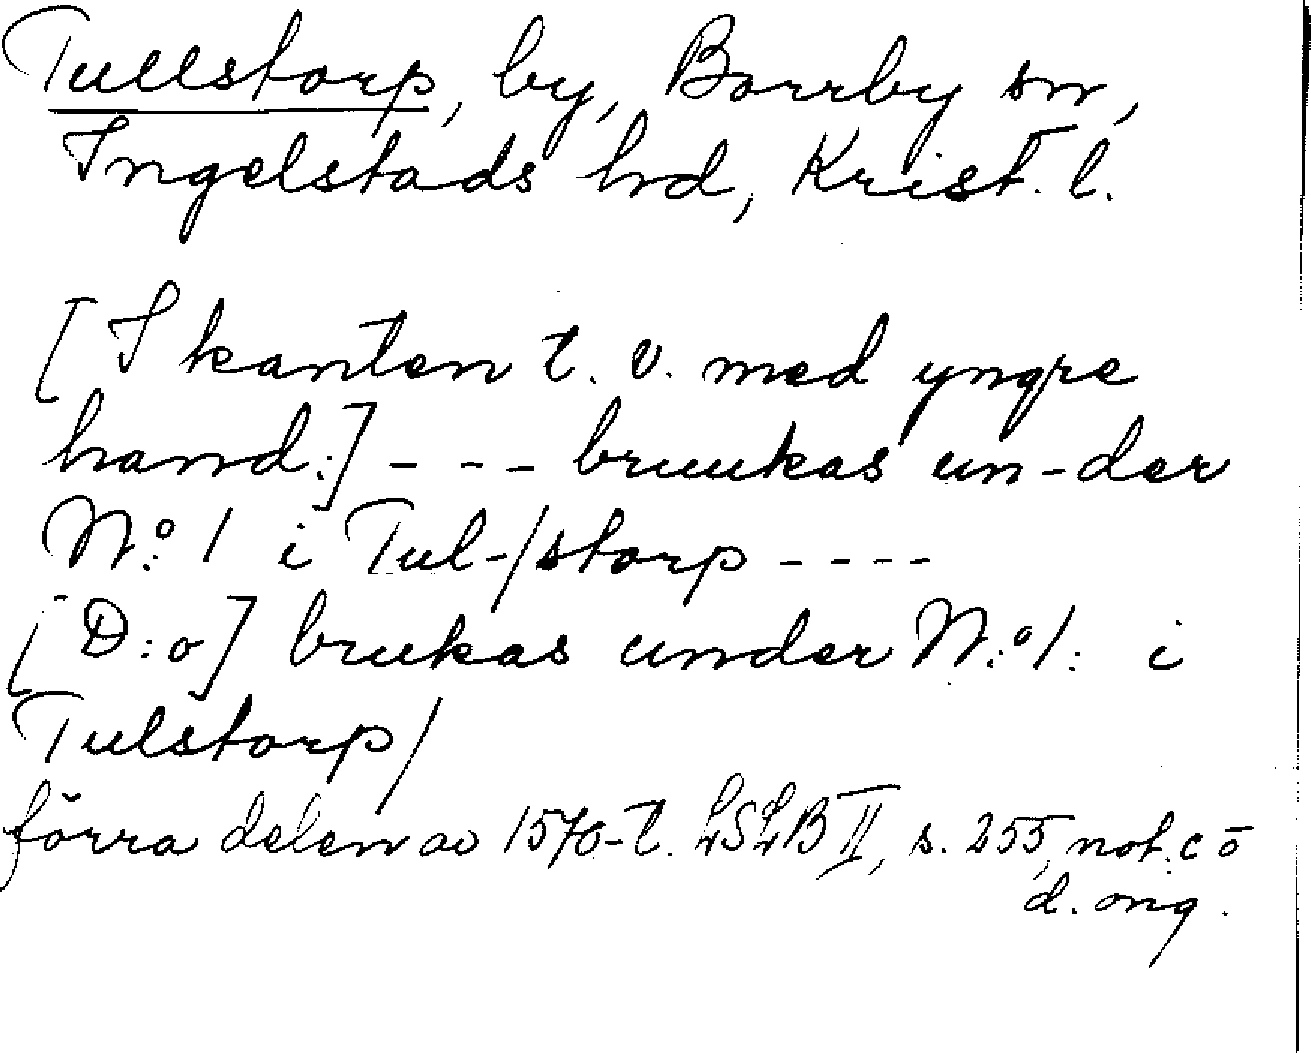 Tullstorp, by, Borrby sn,
Ingelstads hd, Krist. l.
[I kanten t. v. med yngre
hand:] - - - bruukas un-der
N:o 1 i Tul-/storp - - - -
[D:o] brukas under N:o 1: i
Tulstorp/
förra delen av 1570-t. LSLB II, s. 255, not. c o
d. ong.